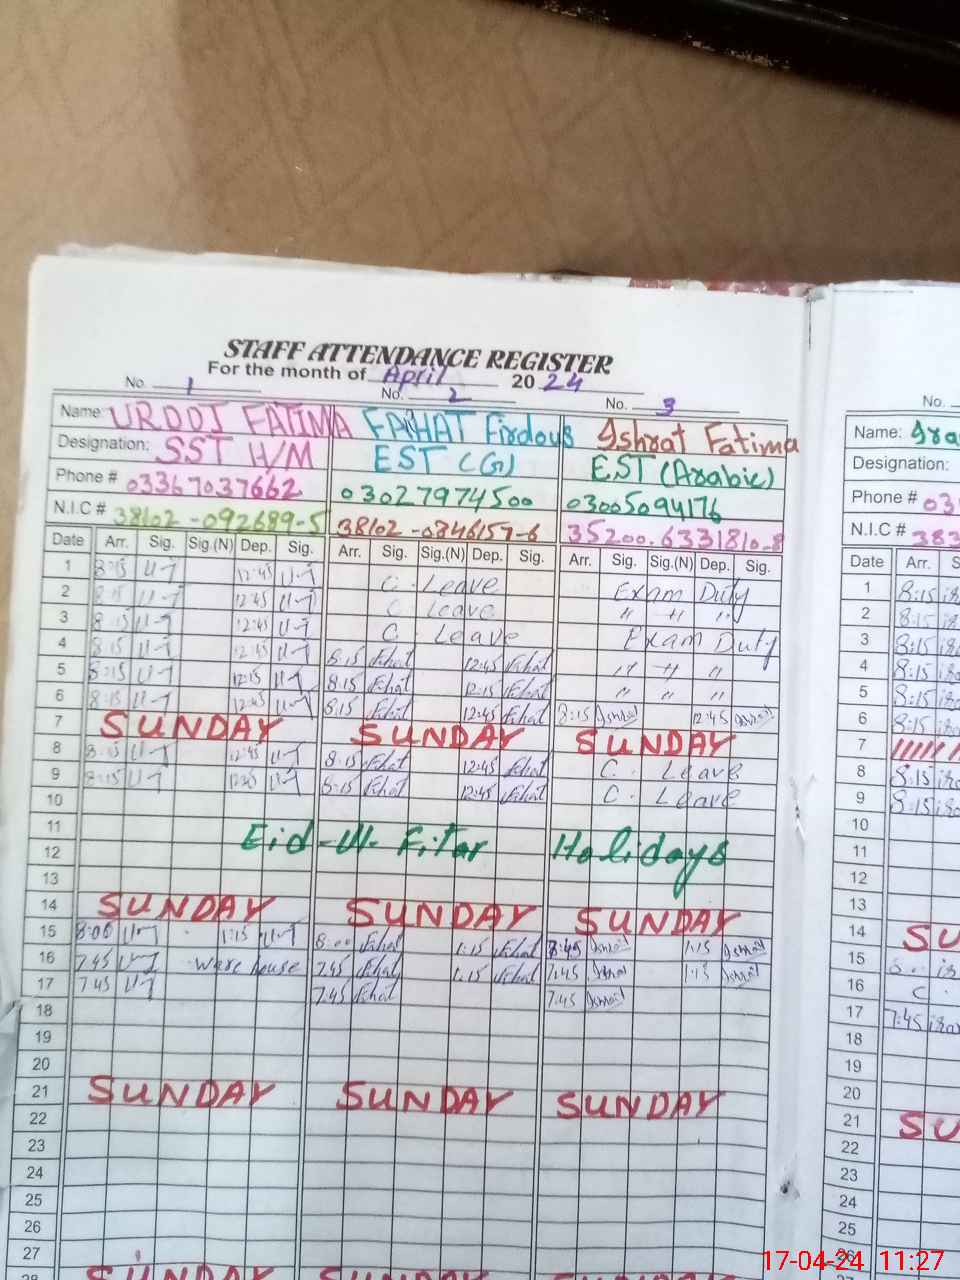 STAFF ATTENDANCE REGISTER
For the month of April 2024
No. 1 No. 2 No. 3 No.
Name: UROOJ FATIMA FARHAT Firdous Ishrat Fatima Name:
Designation: SST H/M EST (G) EST (Arabic) Designation:
Phone # 03367037662 03027974500 03005094176 Phone # 03
N.I.C # 38102-092689-5 38102-0846157-6 35200.6331810-8 N.I.C # 383
Date Arr. Sig. Sig.(N) Dep. Sig. Arr. Sig. Sig.(N) Dep. Sig. Arr. Sig. Sig.(N) Dep. Sig. Date Arr. S
1 8:15 12:45 C. Leave Exam Duty 1 8:15
2 8:15 12:45 C Leave " " " 2 8:15
3 8:15 12:45 C. Leave Exam Duty 3 8:15
4 8:15 12:45 8:15 12:45 " " " 4 8:15
5 8:15 12:15 8:15 12:15 " " " 5 8:15
6 8:15 12:45 8:15 12:45 8:15 12:45 6 8:15
7 SUNDAY SUNDAY SUNDAY 7
8 8:15 12:45 8:15 12:45 C. Leave 8 8:15
9 8:15 12:45 8:15 12:45 C. Leave 9 8:15
10 10
11 Eid-Ul-Fitar Holidays 11
12 12
13 13
14 SUNDAY SUNDAY SUNDAY 14 SU
15 8:00 1:15 8:00 1:15 8:45 1:15 15
16 7:45 ware house 7:45 1:15 7:45 1:15 16 C
17 7:45 7:45 7:45 17 7:45
18 18
19 19
20 20
21 SUNDAY SUNDAY SUNDAY 21 SU
22 22
23 23
24 24
25 25
26 26
27
17-04-24 11:27